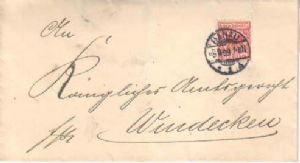 An
Königliches Amtsgericht
Windecken